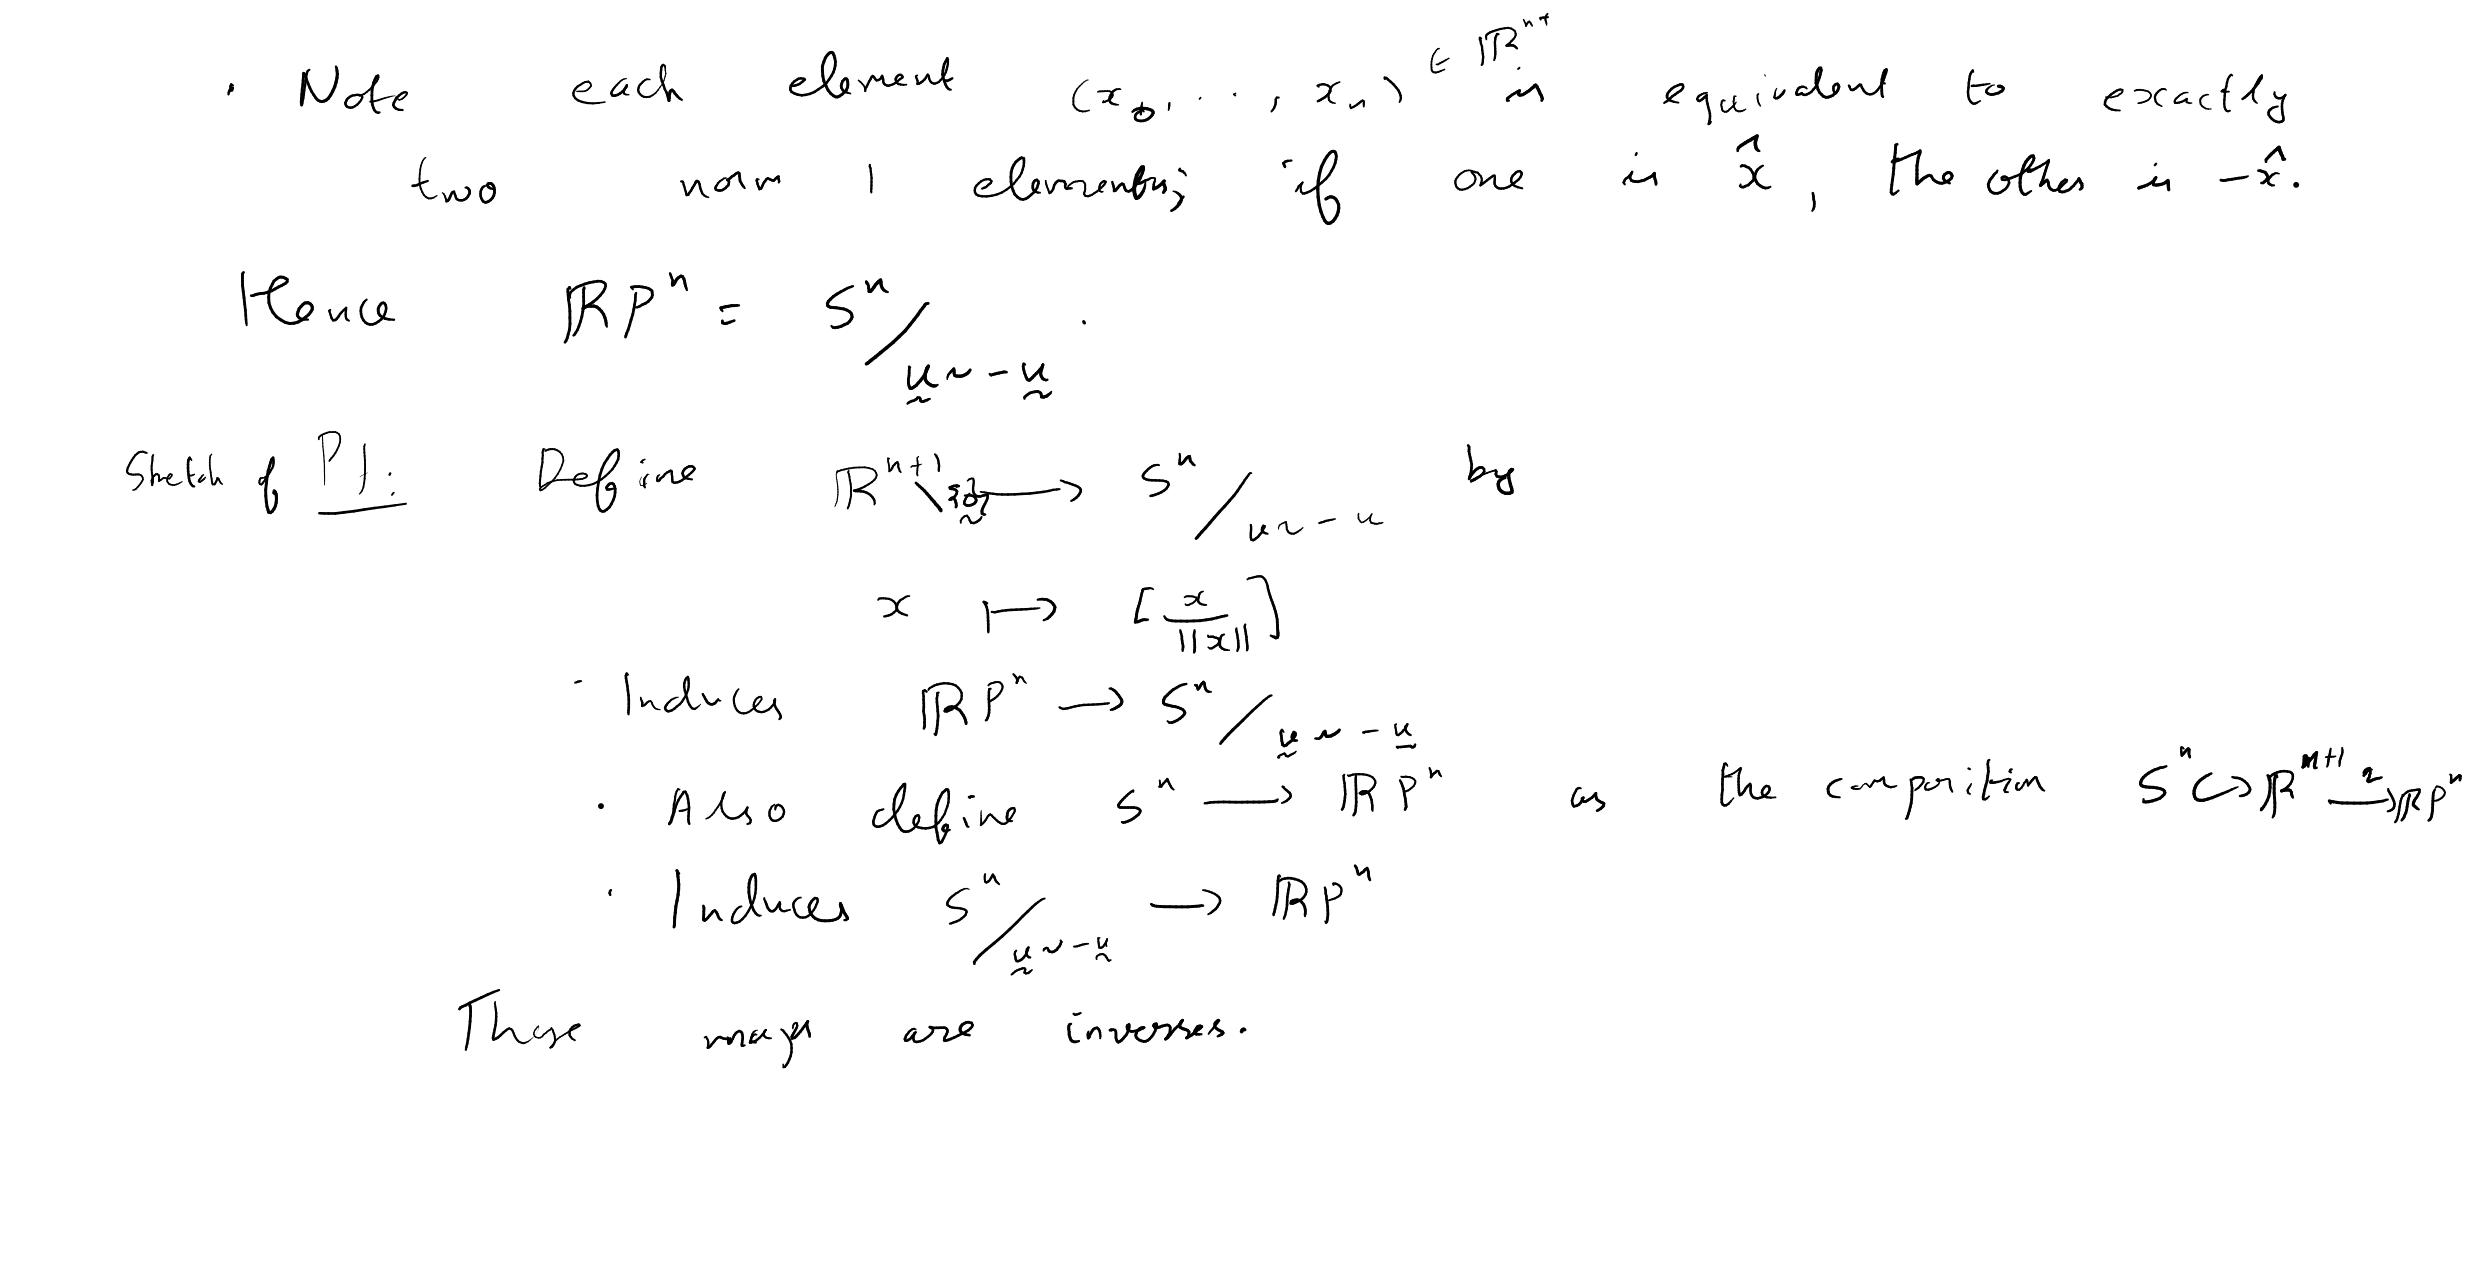 · Note each element (x₀, ..., xₙ) ∈ ℝⁿ⁺ is equivalent to exactly
two norm 1 elements; if one is x̂, the other is -x̂.
Hence ℝPⁿ = Sⁿ/u ~ -u.
Sketch of Pf: Define ℝⁿ⁺¹\{0} → Sⁿ/u ~ -u by
x ↦ [x/||x||]
· Induces ℝPⁿ → Sⁿ/u ~ -u
· Also define Sⁿ → ℝPⁿ as the composition Sⁿ ↪ ℝⁿ⁺¹ →^q ℝPⁿ
· Induces Sⁿ/u ~ -u → ℝPⁿ
These maps are inverses.